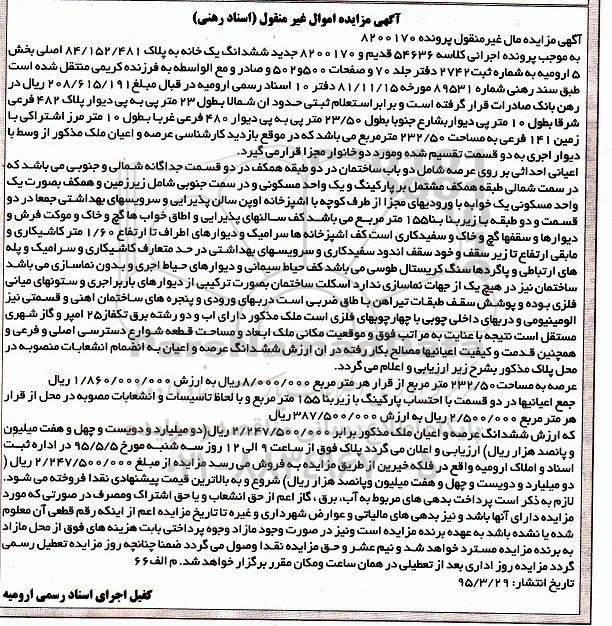 آگهی مزایده اموال غیر منقول (اسناد رهنی)
آگهی مزایده مال غیرمنقول پرونده ۸۲۰۰۱۷۰
به موجب پرونده اجرائی کلاسه ۵۴۶۳۶ قدیم و ۸۲۰۰۱۷۰ جدید ششدانگ یک خانه به پلاک ۸۴/۱۵۲/۴۸۱ اصلی بخش
۵ ارومیه به شماره ثبت ۲۷۴۲ دفتر جلد ۷۰ و صفحات ۵۰۰و۵۰۲ و صادر و مع الواسطه به فرزنده کریمی منتقل شده است
طبق سند رهنی شماره ۸۹۵۳۱ مورخه ۸۱/۱۱/۱۵ دفتر ۱۰ اسناد رسمی ارومیه در قبال مبلغ ۲۰۸/۶۱۵/۱۹۱ ریال در
رهن بانک صادرات قرار گرفته است و برابر استعلام ثبتی حدود ان شمالا بطول ۲۳ متر پی به پی دیوار پلاک ۴۸۲ فرعی
شرقا بطول ۱۰ متر پی دیوار بشارع جنوبا بطول ۲۳/۵۰ متر پی به پی دیوار ۴۸۰ فرعی غربا بطول ۱۰ متر مرز اشتراکی با
زمین ۱۴۱ فرعی به مساحت ۲۳۲/۵۰ مترمربع می باشد که در موقع بازدید کارشناسی عرصه و اعیان ملک مذکور از وسط با
دیوار اجری به دو قسمت تقسیم شده ومورد دو خانوار مجزا قرار می گیرد.
اعیانی احداثی بر روی عرصه شامل دو باب ساختمان در دو طبقه همکف در دو قسمت جداگانه شمالی و جنوبی می باشد که
در سمت شمالی طبقه همکف مشتمل بر پارکینگ و یک واحد مسکونی و در سمت جنوبی شامل زیرزمین و همکف بصورت یک
واحد مسکونی یک خوابه با ورودیهای مجزا از طرف کوچه با اشپزخانه اوپن سالن پذیرایی و سرویسهای بهداشتی جمعا در دو
قسمت و دو طبقه با زیربنا بنا۱۵۵ متر مربع می باشد کف سالنهای پذیرایی و اطاق خواب ها گچ و خاک و موکت فرش و
دیوارها و سقفها گچ و خاک و سفیدکاری است کف اشپزخانه ها سرامیک و دیوارهای اطراف تا ارتفاع ۱/۶۰ متر کاشیکاری و
مابقی ارتفاع تا زیر سقف و خود سقف اندود سفیدکاری و سرویسهای بهداشتی در حد متعارف کاشیکاری و سرامیک و پله
های ارتباطی و پاگردها سنگ کریستال طوسی می باشد کف حیاط سیمانی و دیوارهای حیاط اجری و بدون نماسازی می باشد
ساختمان نیز در هیچ یک از جهات نماسازی ندارد اسکلت ساختمان بصورت ترکیبی از دیوارهای باربر اجری و ستونهای میانی
فلزی بوده و پوشش سقف طبقات تیراهن با طاق ضربی است دربهای ورودی و پنجره های ساختمان اهنی و قسمتی نیز
الومینیومی و دربهای داخلی چوبی با چهارچوبهای فلزی است ملک مذکور دارای اب و دو رشته برق تکفاز۲۵ امپر و گاز شهری
مستقل است نتیجه با عنایت به مراتب فوق و موقعیت مکانی ملک ابعاد و مساحت قطعه شوارع دسترسی اصلی و فرعی و
همچنین قدمت و کیفیت اعیانیها مصالح بکار رفته در ان ارزش ششدانگ عرصه و اعیان به انضمام انشعابات منصوبه در
محل پلاک مذکور بشرح زیر ارزیابی و اعلام می گردد.
عرصه به مساحت ۲۳۲/۵۰ متر مربع از قرار هر متر مربع ۸/۰۰۰/۰۰۰ ریال به ارزش ۱/۸۶۰/۰۰۰/۰۰۰ ریال
جمع اعیانیها در دو قسمت با احتساب پارکینگ با زیربنا ۱۵۵ متر مربع و با لحاظ تاسیسات و انشعابات مصوبه در محل از قرار
هر متر مربع ۲/۵۰۰/۰۰۰ ریال به ارزش ۳۸۷/۵۰۰/۰۰۰ ریال
که ارزش ششدانگ عرصه و اعیان ملک مذکور برابر ۲/۲۴۷/۵۰۰/۰۰۰ ریال(دو میلیارد و دویست و چهل و هفت میلیون
و پانصد هزار ریال) ارزیابی و اعلان می گردد پلاک فوق از ساعت ۹ الی ۱۲ روز سه شنبه مورخ ۹۵/۵/۵ در اداره ثبت
اسناد و املاک ارومیه واقع در فلکه خیرین از طریق مزایده به فروش می رسد مزایده از مبلغ ۲/۲۴۷/۵۰۰/۰۰۰ ریال (
دو میلیارد و دویست و چهل و هفت میلیون وپانصد هزار ریال) شروع و به بالاترین قیمت پیشنهادی نقدا فروخته می شود.
لازم به ذکر است پرداخت بدهی های مربوط به آب، برق ، گاز اعم از حق انشعاب و یا حق اشتراک ومصرف در صورتی که مورد
مزایده دارای آنها باشد و نیز بدهی های مالیاتی و عوارض شهرداری و غیره تا تاریخ مزایده اعم از اینکه رقم قطعی آن معلوم
شده یا نشده باشد به عهده برنده مزایده است ونیز در صورت وجود مازاد وجوه پرداختی بابت هزینه های فوق از محل مازاد
به برنده مزایده مسترد خواهد شد و نیم عشر و حق مزایده نقدا وصول می گردد ضمنا چنانچه روز مزایده تعطیل رسمی
گردد مزایده روز اداری بعد از تعطیلی در همان ساعت ومکان مقرر برگزار خواهد شد. م الف۶۶
تاریخ انتشار: ۹۵/۳/۲۹
کفیل اجرای اسناد رسمی ارومیه